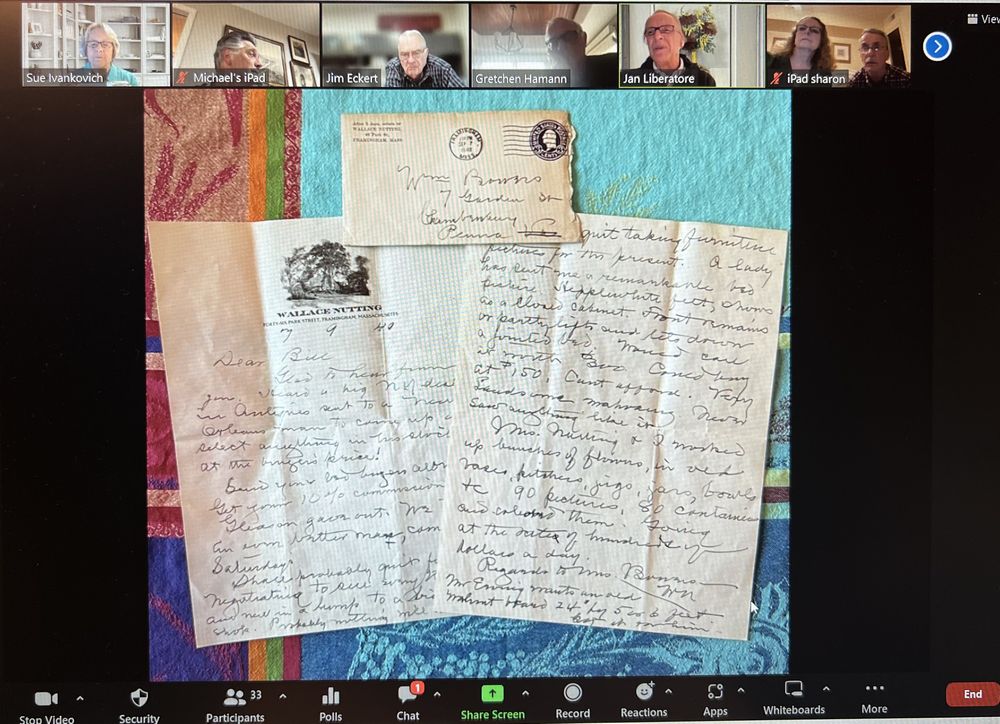 View
Sue Ivankovich
Michael's iPad
Jim Eckert
Gretchen Hamann
Jan Liberatore
iPad sharon
After 5 days, return to
WALLACE NUTTING,
46 Park St.,
FRAMINGHAM, MASS.
FRAMINGHAM
SEP 7
MASS.
Wm Bowers
7 Garden St
Chambersburg
Penna
WALLACE NUTTING
FORTY-SIX PARK STREET, FRAMINGHAM, MASSACHUSETTS
7 9 40
Dear Bill
Glad to hear from
you. Heard a big NY
in Antiques sent to a New
Orleans man to come up
select anything in his store
at the buyers' price!
Send your buyers
Get your 10% commission
Gleason gave out. We
an even better man, com
Saturday.
Shall probably quit
negotiating to sell every
and in a lump to a
shop. Probably nothing
quit taking furniture
pictures for the present. A lady
has sent me a remarkable bed
picture Hepplewhite, shows
as a closed cabinet. Front remains
or partly lifts and lets down
a jointed bed.
at worth Could buy
at $150. Can't afford. Very
handsome mahogany Never
saw anything like it.
Mrs. Nutting & I worked
up bunches of flowers, in old
vases, pitchers, jugs, jars, bowls
&c 90 pictures, 80 containers
and colored them. Going
at the rate of hundreds of
dollars a day.
Regards to Mrs. Bowers
WN
Mr Erving wants an old
walnut board 24" by 5 or 6 feet.
Get it for him.
Stop Video
Security
33
Participants
Polls
1
Chat
Share Screen
Record
Reactions
Apps
Whiteboards
More
End